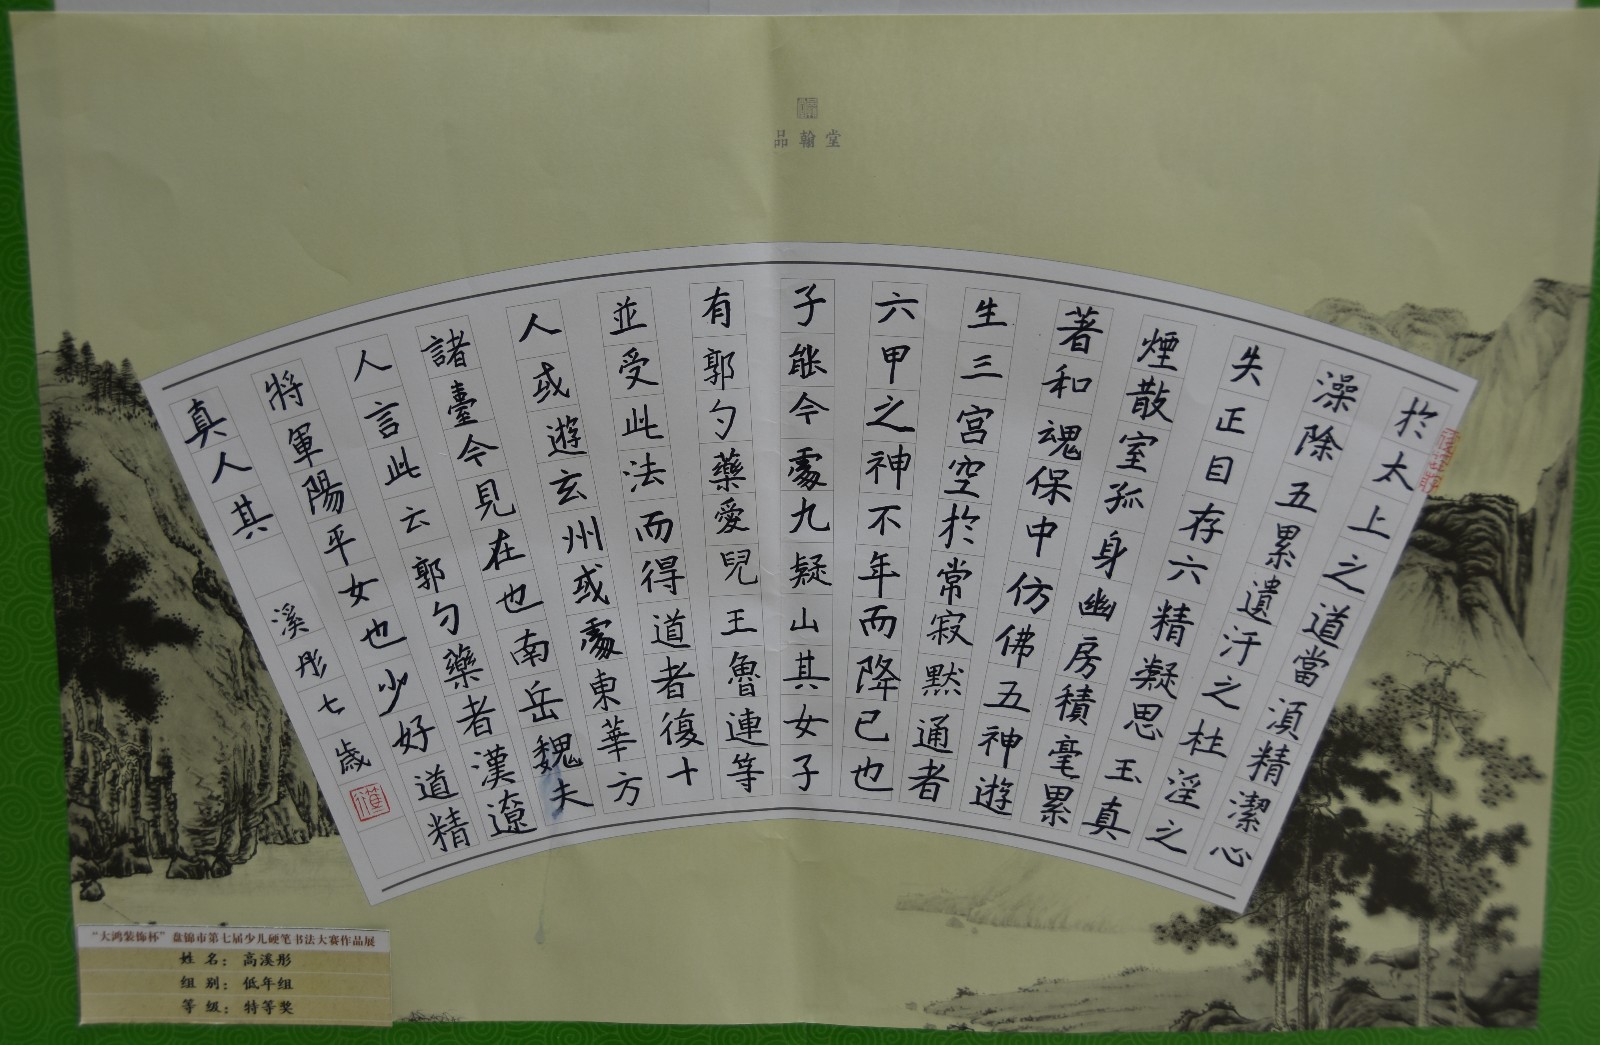 品翰堂
於太上之道當湏精潔心
澡除五累遺汙之杜淫之
失正目存六精凝思玉真
煙散室孤身幽房積毫累
著和魂保中仿佛五神遊
生三宫空於常寂默通者
六甲之神不年而降已也
子能今處九疑山其女子
有郭勺藥愛兒王魯連等
並受此法而得道者復十
人或遊玄州或處東華方
諸臺今見在也南岳魏夫
人言此云郭勺藥者漢遼
將軍陽平女也少好道精
真人其 溪彤七歲
“大鸿装饰杯”盘锦市第七届少儿硬笔书法大赛作品展
姓名：高溪彤
组别：低年组
等级：特等奖